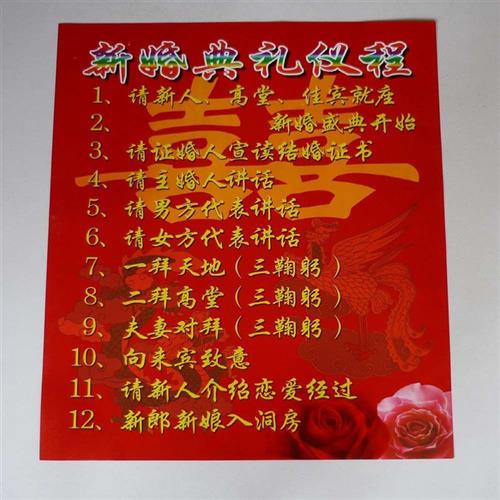 新婚典礼仪程
1、请新人、高堂、佳宾就座
2、 新婚盛典开始
3、请证婚人宣读结婚证书
4、请主婚人讲话
5、请男方代表讲话
6、请女方代表讲话
7、一拜天地（三鞠躬）
8、二拜高堂（三鞠躬）
9、夫妻对拜（三鞠躬）
10、向来宾致意
11、请新人介绍恋爱经过
12、新郎新娘入洞房
囍